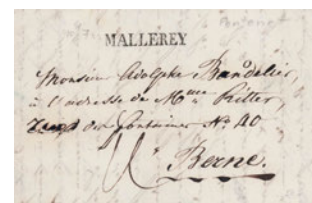 MALLEREY
Monsieur Adolphe Bandelier,
à l'adresse de Mme Ritter,
des fontaines No 40
Berne.